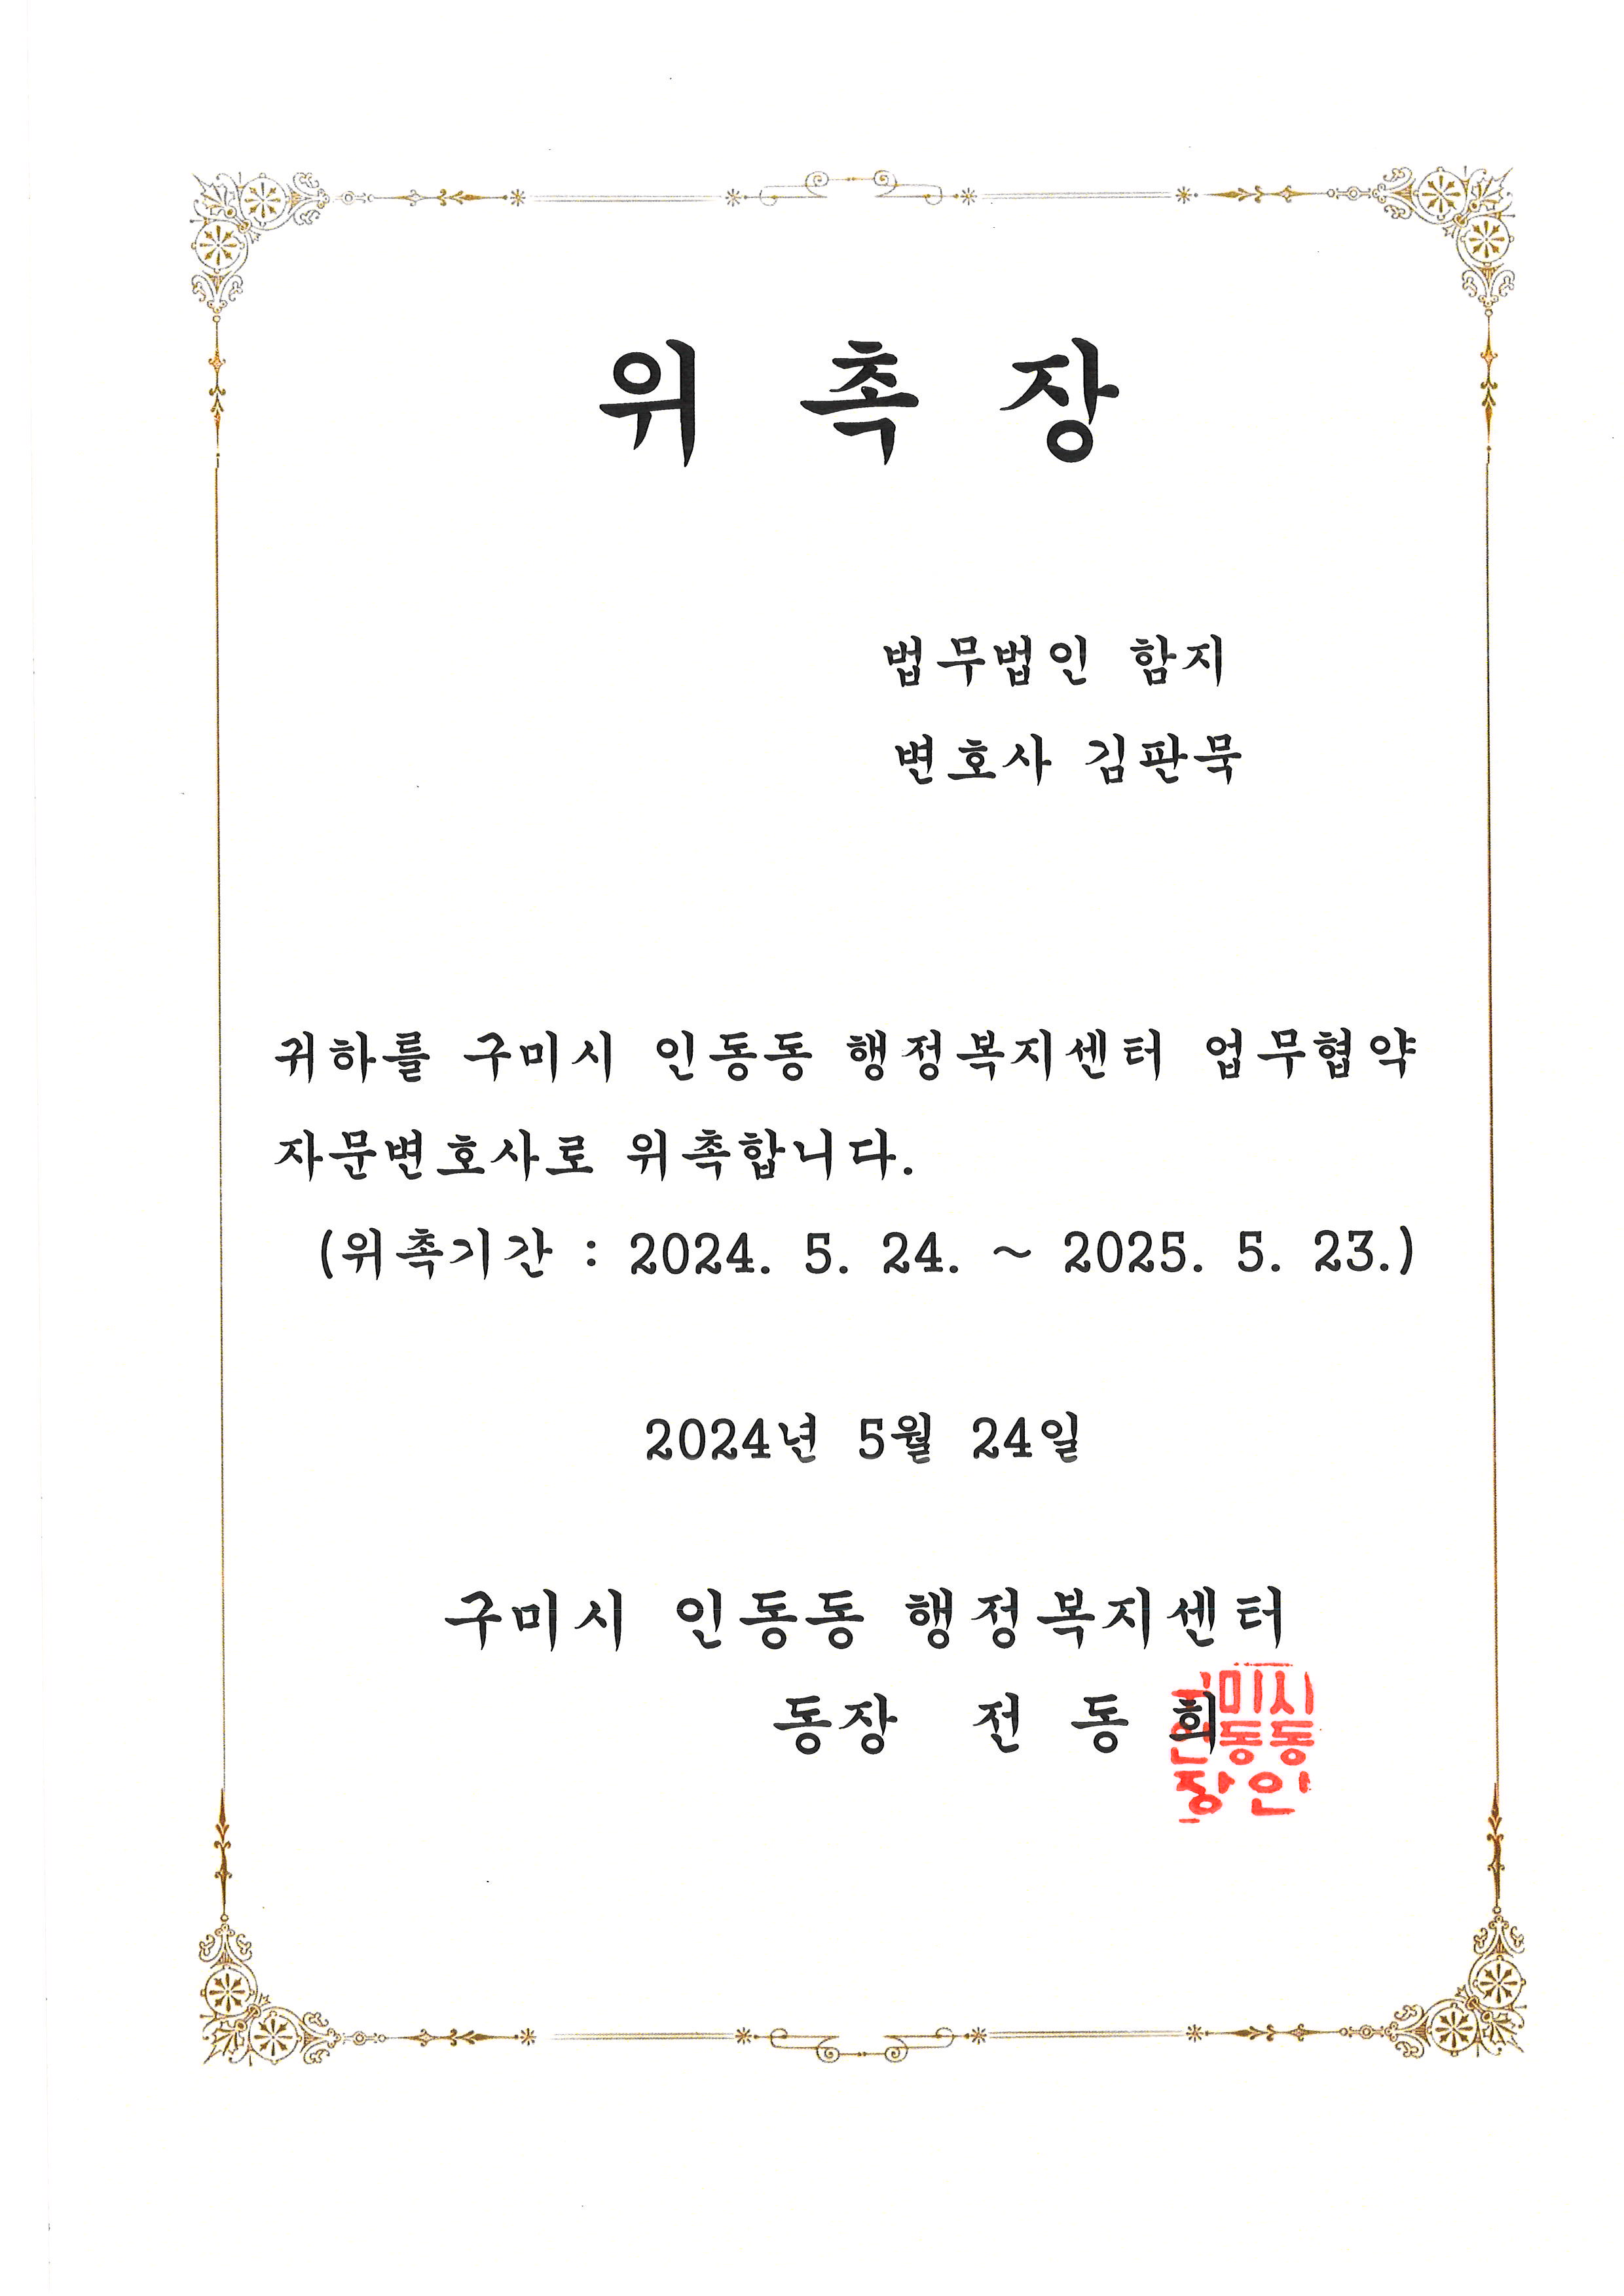 위 촉 장
법무법인 함지
변호사 김판묵
귀하를 구미시 인동동 행정복지센터 업무협약
자문변호사로 위촉합니다.
(위촉기간 : 2024. 5. 24. ~ 2025. 5. 23.)
2024년 5월 24일
구미시 인동동 행정복지센터
동장 전 동 희
구미시
인동동
장인